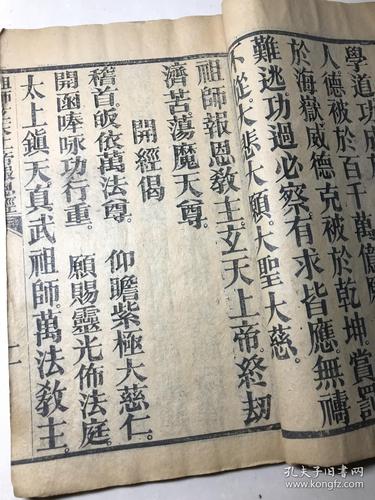 學道功成
人德被於百千萬億
於海嶽。威德克被於乾坤。賞罰
難逃。功過必察。有求皆應。無禱
不從。大悲大願。大聖大慈。
祖師報恩敎主。玄天上帝。終劫
濟苦蕩魔天尊。
開經偈
稽首皈依萬法尊。 仰瞻紫極大慈仁。
開函唪咏功行重。 願賜靈光佈法庭。
太上鎮天真武祖師。萬法敎主。
孔夫子旧书网
www.kongfz.com